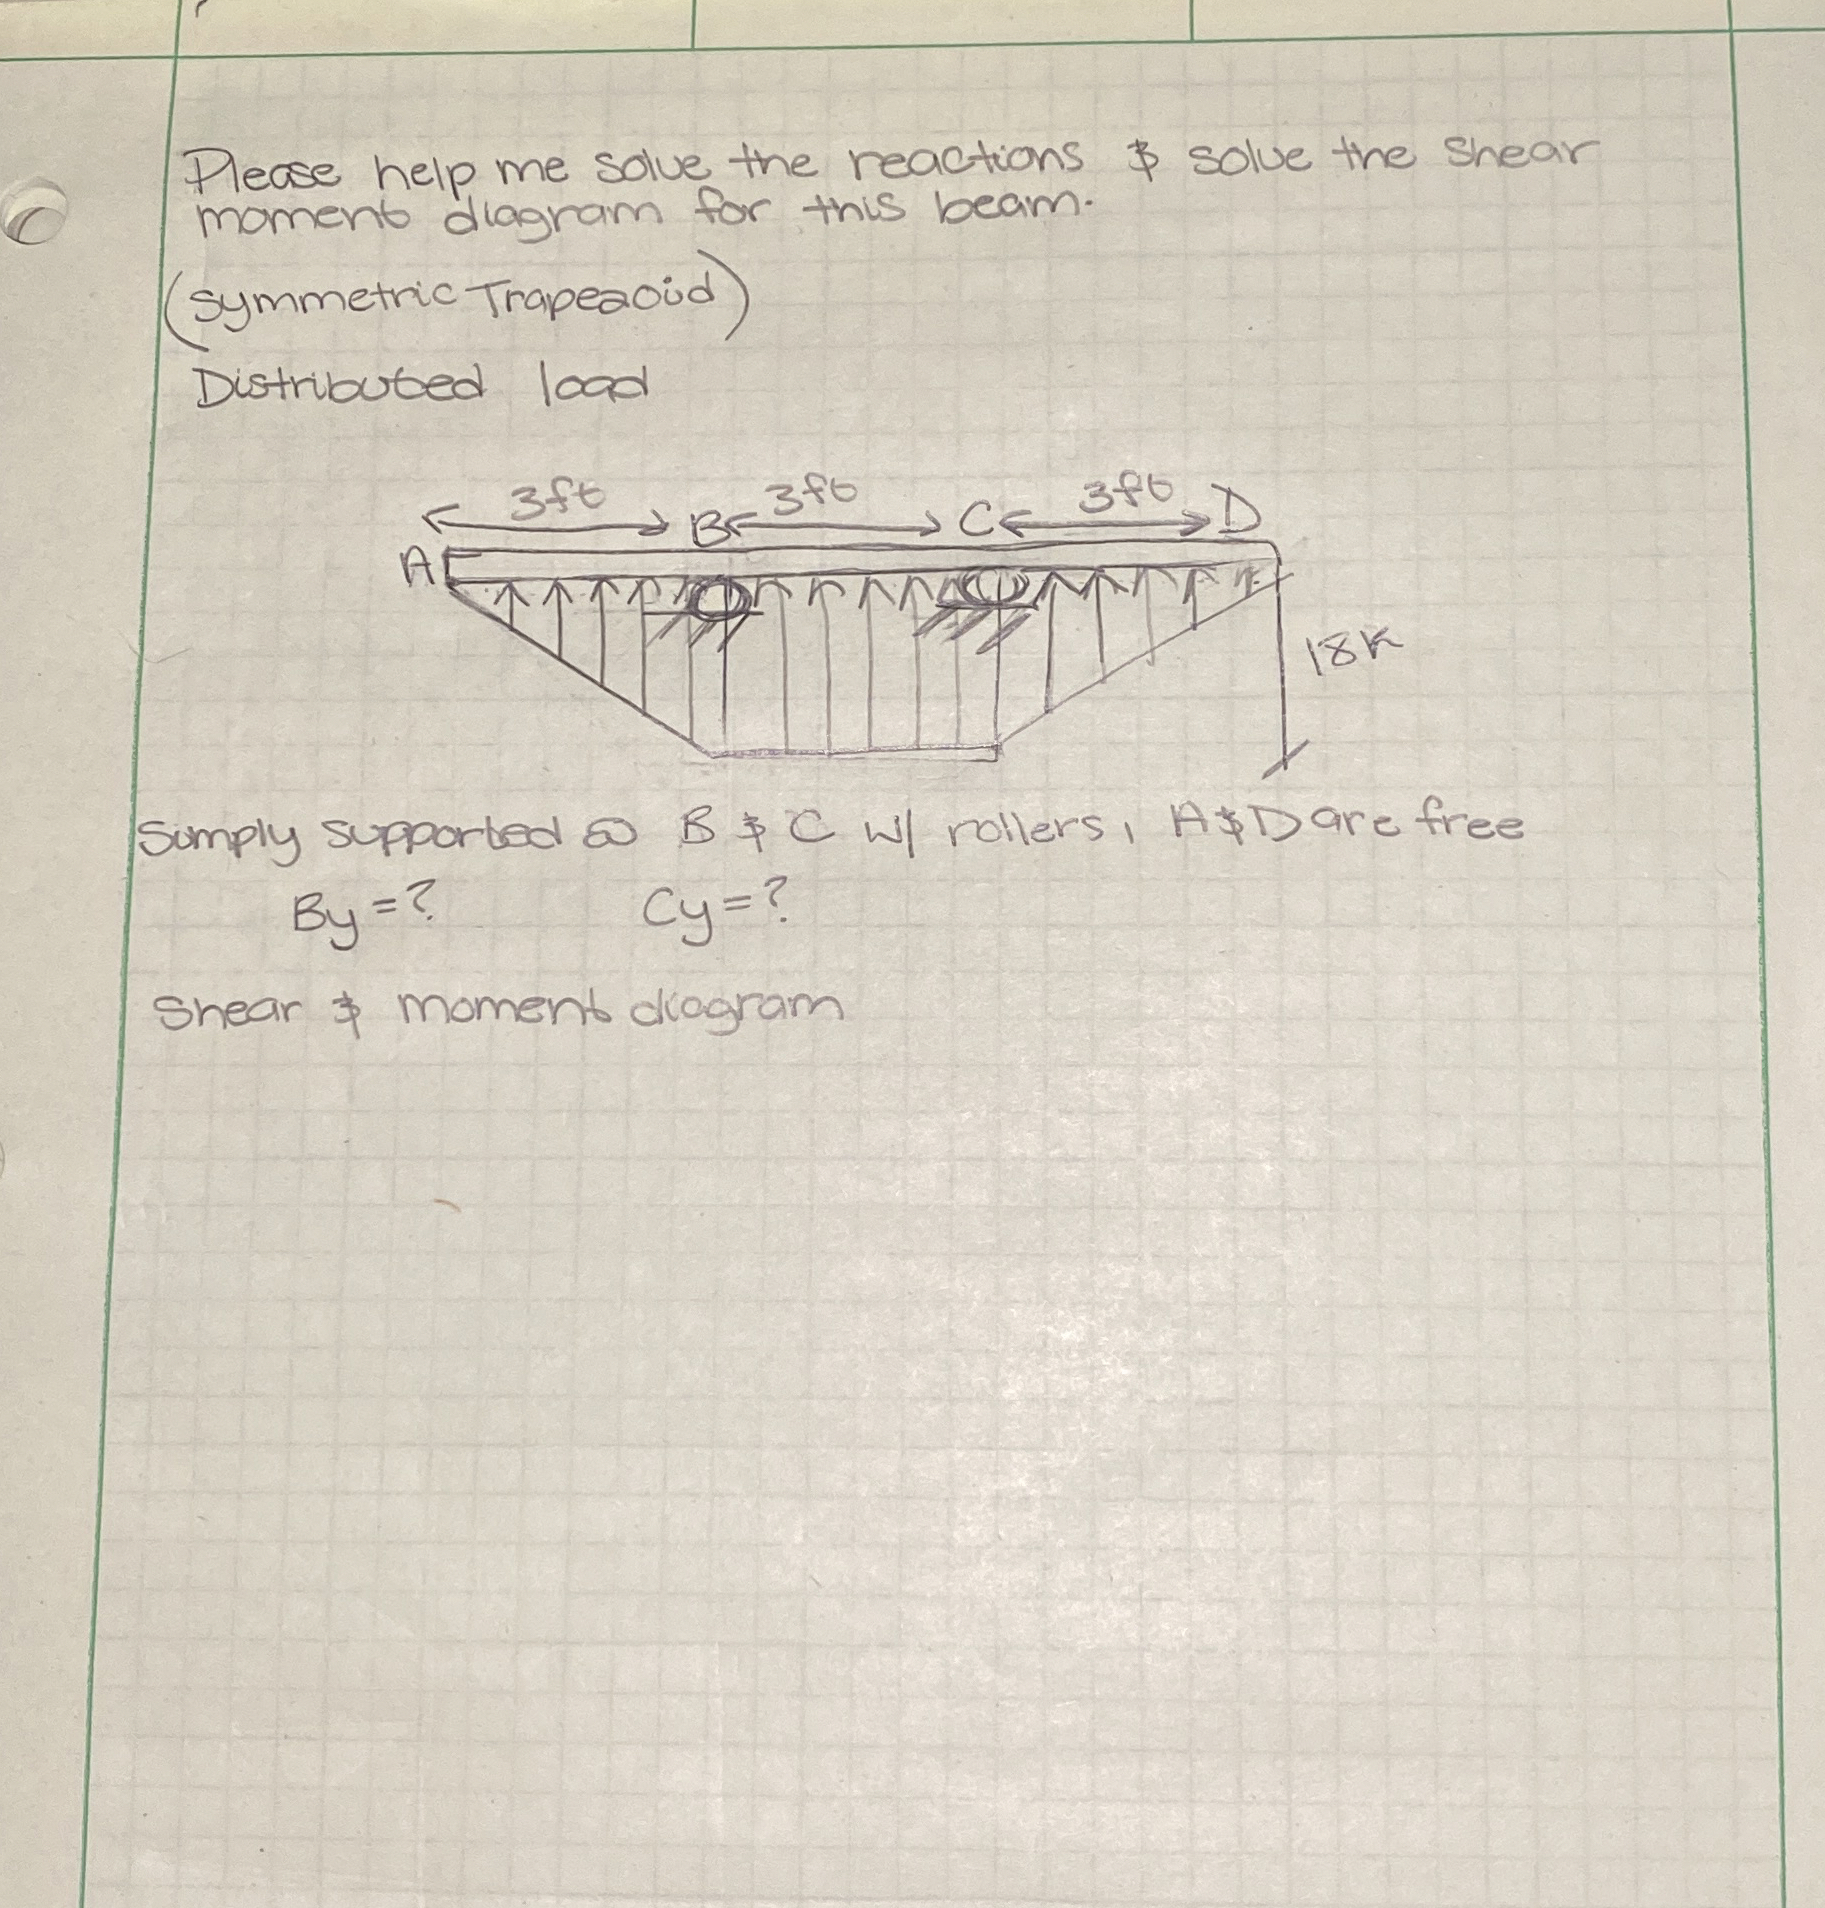 Please help me solve the reactions & solve the shear
moment diagram for this beam.
(Symmetric Trapezoid)
Distributed load
3ft 3ft 3ft
A B C D
18K
Simply supported @ B & C w/ rollers, A & D are free
By = ? Cy = ?
Shear & moment diagram